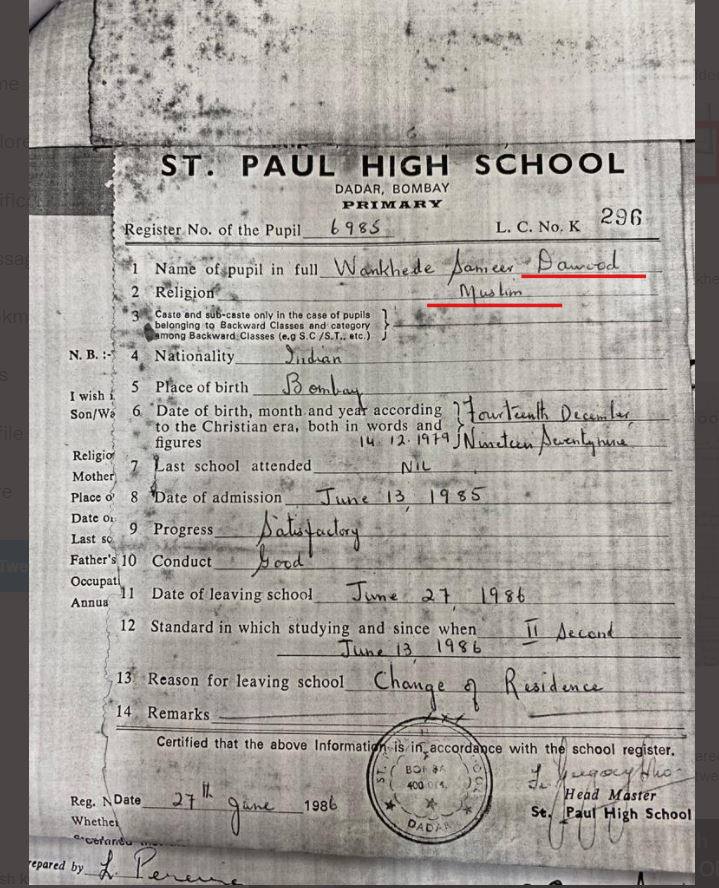 ST. PAUL HIGH SCHOOL
DADAR, BOMBAY
PRIMARY
Register No. of the Pupil 6985 L. C. No. K 296
1 Name of pupil in full Wankhede Sameer Dawood
2 Religion Muslim
3 Caste and sub-caste only in the case of pupils
belonging to Backward Classes and category
among Backward Classes (e.g S.C /S.T., etc.)
N. B. :- 4 Nationality Indian
5 Place of birth Bombay
I wish
Son/Wa 6 Date of birth, month and year according Fourteenth December
to the Christian era, both in words and
figures 14. 12. 1979 Nineteen Seventynine
Religio
7 Last school attended NIL
Mother
Place o 8 Date of admission June 13, 1985
Date o
Last sc 9 Progress Satisfactory
Father's 10 Conduct Good
Occupati
Annua 11 Date of leaving school June 27, 1986
12 Standard in which studying and since when II Second
June 13, 1986
13 Reason for leaving school Change of Residence
14 Remarks
Certified that the above Information is in accordance with the school register.
BOMBAY
400 014.
DADAR
Head Master
Reg. N Date 27th June 1986 St. Paul High School
Whether
repared by L. Pereira